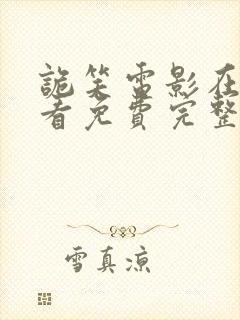 詭笑雷影在
看免費完整
雪真涼